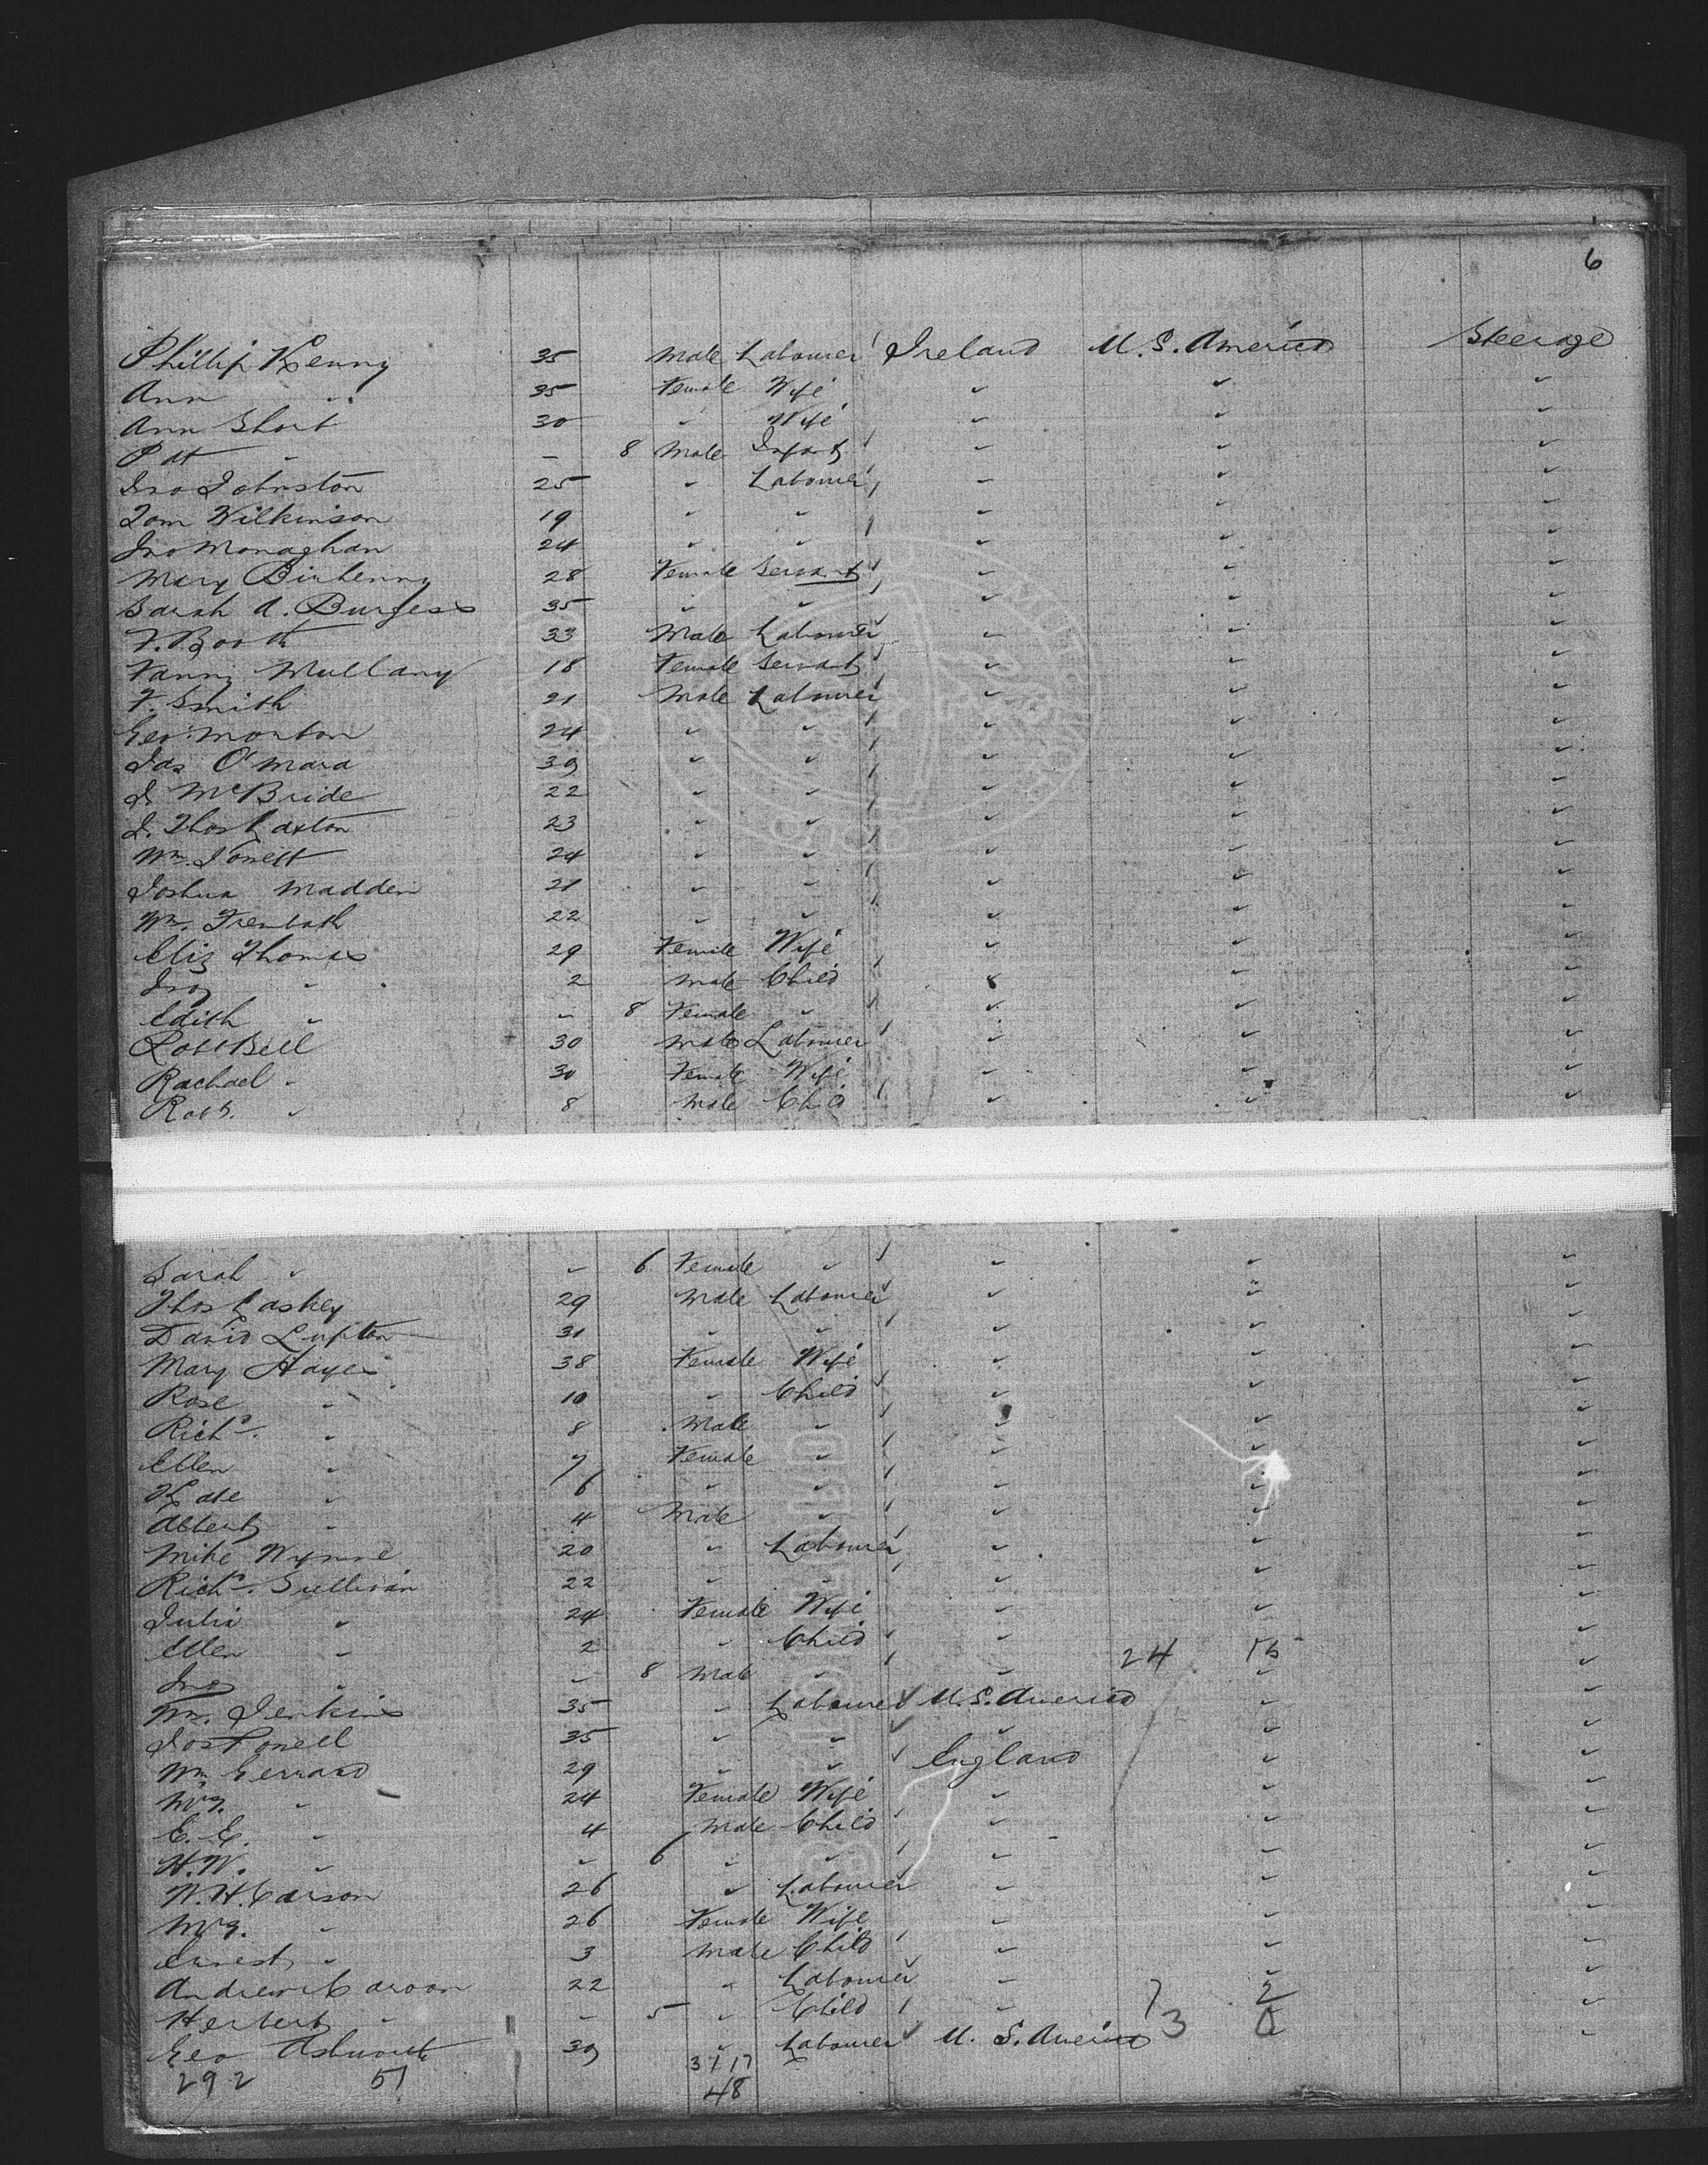 6
Phillip Kenny 35 Male Labourer Ireland U.S. America Steerage
Ann " 35 Female Wife " " "
Ann Short 30 " Wife " " "
Pat " – 8 Male Infant " " "
Jno Johnston 25 " Labourer " " "
Tom Wilkinson 19 " " " " "
Jno Monaghan 24 " " " " "
Mary 28 Female Servant " " "
Sarah A. Burgess 35 " " " " "
F. Booth 33 Male Labourer " " "
Fanny Mullany 18 Female Servant " " "
F. Smith 21 Male Labourer " " "
Geo. Morton 24 " " " " "
Jas O'Mara 39 " " " " "
J. McBride 22 " " " " "
J. Thos Laxton 23 " " " " "
Wm. 24 " " " " "
Joshua Madden 21 " " " " "
Wm. Trembath 22 " " " " "
Eliz Thomas 29 Female Wife " " "
Jno " 2 Male Child " " "
Edith " – 8 Female " " " "
Robt Bell 30 Male Labourer " " "
Rachael " 30 Female Wife " " "
Robt. " 8 Male Child " " "
Sarah " – 6 Female " " " "
Thos Laskey 29 Male Labourer " " "
David Lupton 31 " " " " "
Mary Hayes 38 Female Wife " " "
Rose " 10 " Child " " "
Richd. " 8 Male " " " "
Ellen " 7 Female " " " "
Kate " 6 " " " " "
Albert " 4 Male " " " "
Mike Wynne 20 " Labourer " " "
Richd. Sullivan 22 " " " " "
Julia " 24 Female Wife " " "
Ellen " 2 " Child " 24 15 "
Jno " – 8 Male " " " "
Wm. Jenkins 35 " Labourer U.S. America " "
Jos 35 " " " " "
Wm Gerrard 29 " " England " "
Mrs. " 24 Female Wife " " "
E. E. " 4 Male Child " " "
H. W. " – 6 " " " " "
W. H. Carson 26 " Labourer " " "
Mrs. " 26 Female Wife " " "
Ernest " 3 Male Child " " "
Andrew Carson 22 " Labourer " " "
Herbert " – 5 " Child " 7 2 "
Geo Ashworth 39 " Labourer U. S. America 3 0 "
292 51 31 17
48